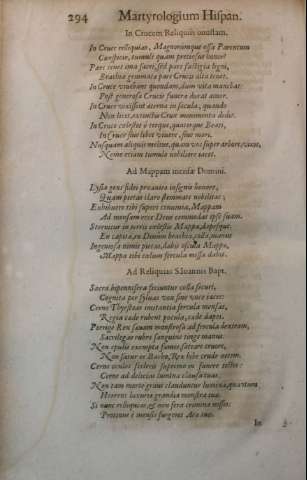 294 Martyrologium Hispan.
In Crucem Reliquiis onustam.
In Cruce reliquiae, Magnorumque ossa Parentum
tumuli quam pretiosus honos!
Pars tenet ima sacri, sed pars fastigia ligni,
Brachia gemmata pars Crucis alta tenet.
In Cruce vivebant quondam, dum vita manebat:
Post generosa Crucis funera durat amor.
In Cruce vexissent aterna in sacula, quando
Non licet, extinctos Cruce monumenta dedit.
In Cruce caelestes ô terque, quaterque Beati,
In Cruce sive libet vivere, sive mori.
Nusquam aliquis melius, quam vos super arbore, vixit,
Nemo etiam tumulo nobiliore iacet.
Ad Mappam mensæ Domini.
gens fidei proavita insignis honore,
Quam pietas claro stemmate nobilitat;
Exhibuere tibi Superi convivia, Mappam
Ad mensam ecce Deus commodat ipse suam.
Sternitur in terris caelestis Mappa, dapesque,
En capis, en Domini brachia, colla, manus
Ingenuosa nimis pietas, dabis oscula Mappæ,
Mappa tibi cœlum fercula missa dabit.
Ad Reliquias S. Ioannis Bapt.
Sacra bipennifera feriuntur colla securi,
Cognita per sylvas vox sine voce tacet:
Cerne Thyesteas instantia fercula mensas,
Regia cæde rubent pocula, cæde dapes.
Porrige Rex sævam monstrosa ad fercula dextram,
Sacrilegas rubro sanguine tinge manus.
Non epulis exempta fames, satiare cruore,
Non satur es Baccho, Rex bibe crude necem.
Cerne oculos sceleris supremo in funere testes:
Cerne ad delicias lumina clausa tuas.
Non tam morte gravi clauduntur lumina, quantum
Horrent luxuriæ grandia monstra tuæ.
Si nunc reliquias, & non fera crimina misces:
Protinus è mensis surget Ara tuis.
In